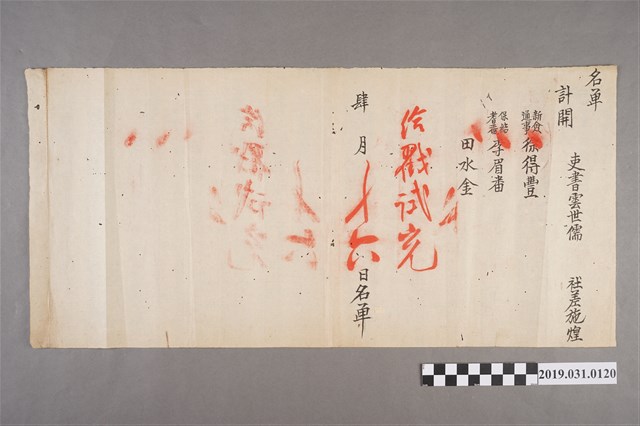 名單
計開
吏書雲世儒 社差施煌
新僉通事 徐得豐
保結耆番 李眉潘
田水金
給戳試充
肆月十六日名單
2019.031.0120